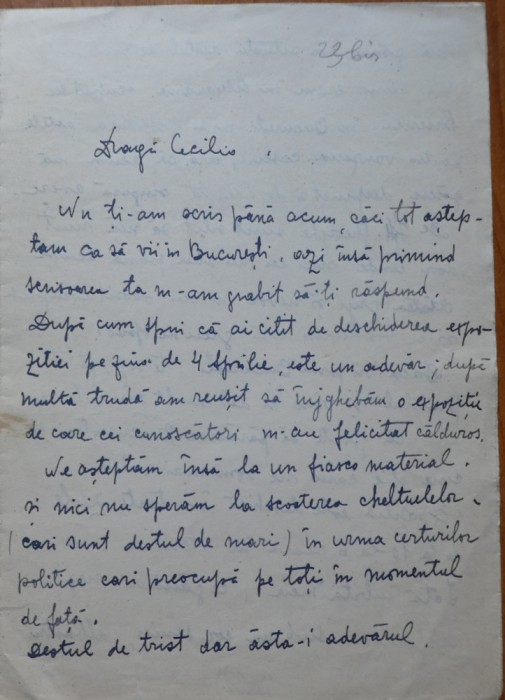 23 bis
Dragă Cecilio,
Nu ți-am scris până acum, căci tot aștep-
tam ca să vii în București, azi însă primind
scrisoarea ta m-am grabit să-ți răspund.
După cum spui că ai citit de deschiderea expo-
ziției pe ziua de 4 Aprilie, este un adevăr; după
multă trudă am reușit să înjghebăm o expoziție
de care cei cunoscători m-au felicitat călduros.
Ne așteptăm însă la un fiasco material.
și nici nu sperăm la scoaterea cheltuelelor,
(cari sunt destul de mari) în urma certurilor
politice cari preocupă pe toți în momentul
de față.
Destul de trist dar ăsta-i adevărul.